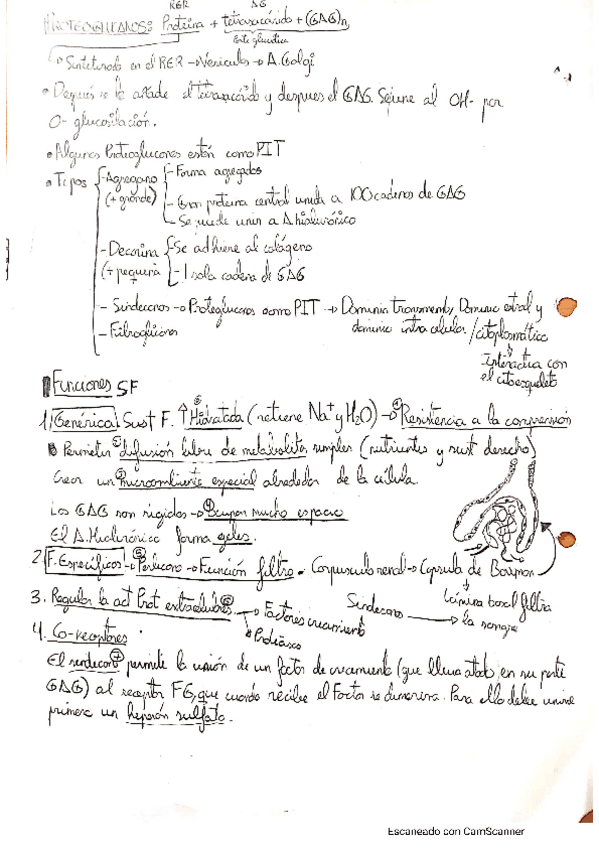 RER AG
PROTEOGLUCANOS: Proteína + tetrasacárido + (GAG)n
Sintetizada en el RER → Vesículas → A. Golgi
• Después se le añade el tetrasacárido y despues el GAG. Se une al OH- por
O- glucosilación.
• Algunos Proteoglucanos están como PIT
• Tipos
- Agregano (+ grande)
- Forma agregados
- Gran proteína central unida a 100 cadenas de GAG
- Se puede unir a A hialurónico
- Decorina (+ pequeña)
- Se adhiere al colágeno
- 1 sola cadena de GAG
- Sindecanos → Proteoglucanos como PIT → Dominio transmemb, Dominio extral y
dominio intracelular/citoplasmático
- Fibroglicanos
Interactua con
el citoesqueleto
Funciones SF
1. Genérica Sust F. ↑ Hidratada (retiene Na+ y H2O) → Resistencia a la compresión
Permiten difusión libre de metabolitos simples (nutrientes y sust desecho)
Crear un microambiente especial alrededor de la célula.
Los GAG son rígidos → Ocupan mucho espacio
El A. Hialurónico forma geles.
2. F. Específicas → Perlecano → Función filtro. Corpusculo renal → Capsula de Bowman
Lámina basal filtra
la sangre
3. Regular la act Prot extracelulares → Factores crecimiento
Proteasas
Sindecano
4. Co-receptores
El sindecano permite la unión de un factor de crecimiento (que lleva atado en su parte
GAG) al receptor FG, que cuando recibe el Factor se dimeriza. Para ello debe unirse
primero un heparán sulfato.
Escaneado con CamScanner